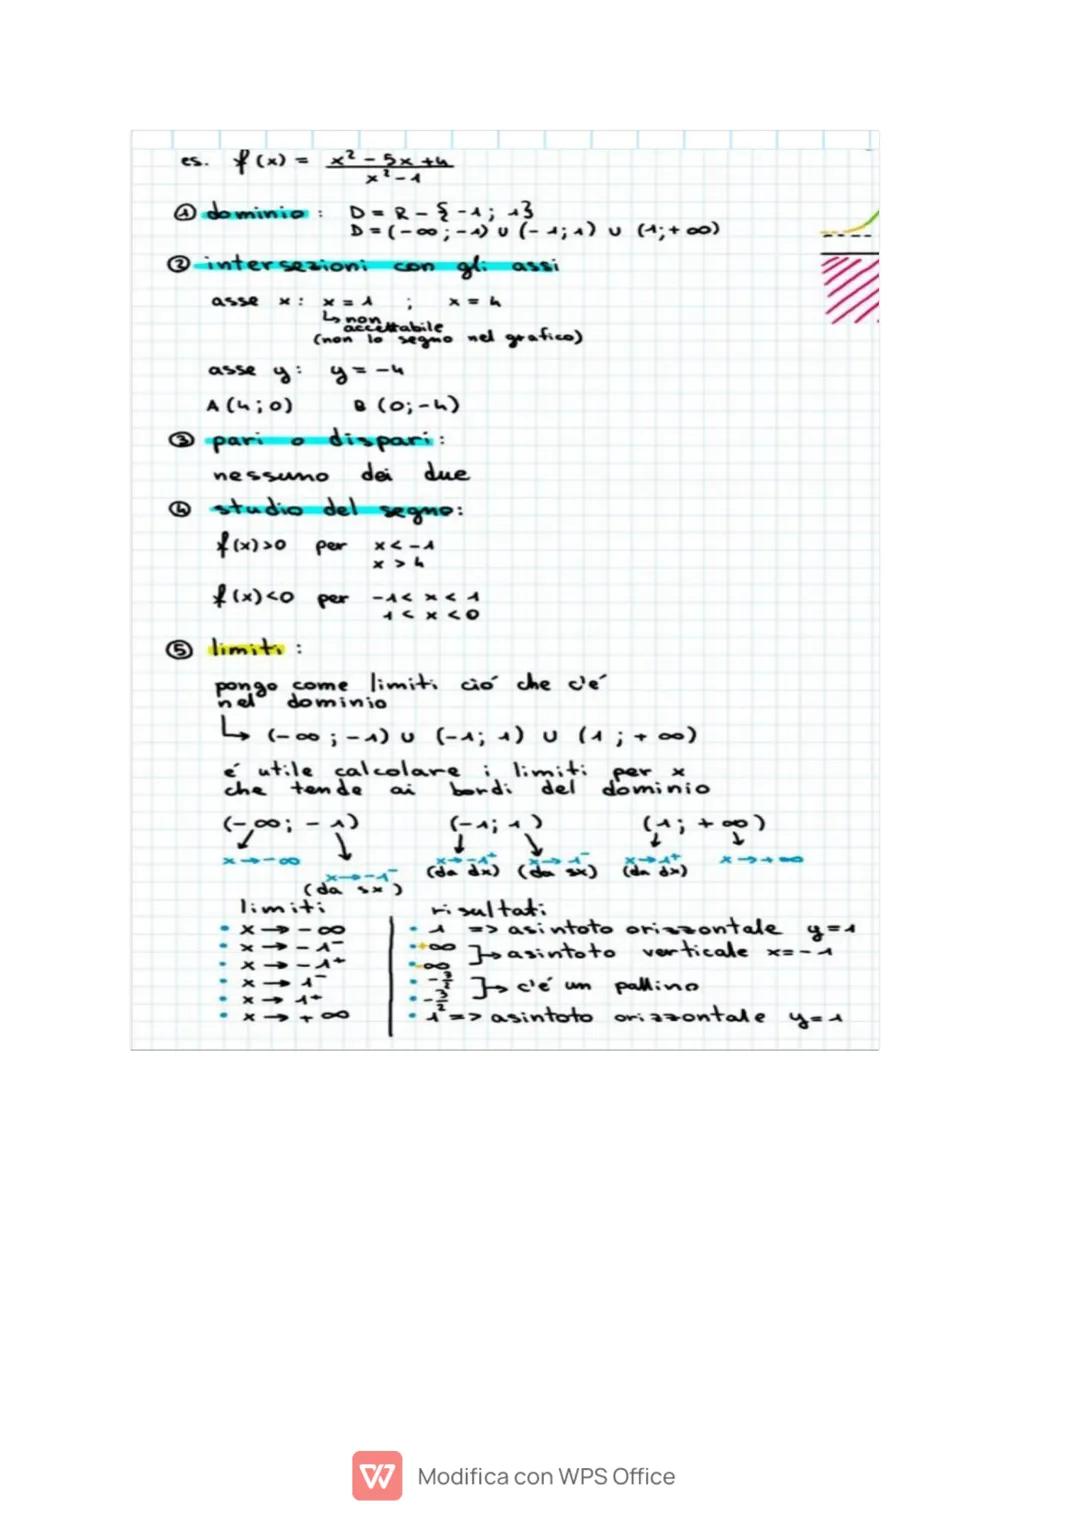 es. f(x) = x² - 5x + 4
x² - 1
① dominio : D = R - {-1; 1}
D = (-∞; -1) ∪ (-1; 1) ∪ (1; +∞)
② intersezioni con gli assi
asse x : x = 1 ; x = 4
↳ non
accettabile
(non lo segno nel grafico)
asse y : y = -4
A (4; 0) B (0; -4)
③ pari o dispari :
nessuno dei due
④ studio del segno:
f(x) > 0 per x < -1
x > 4
f(x) < 0 per -1 < x < 1
1 < x < 0
⑤ limiti :
pongo come limiti ció che c'é
nel dominio
↳ (-∞; -1) ∪ (-1; 1) ∪ (1; +∞)
é utile calcolare i limiti per x
che tende ai bordi del dominio
(-∞; -1) (-1; 1) (1; +∞)
x → -∞ x → -1⁻ x → -1⁺ x → 1⁻ x → 1⁺ x → +∞
(da sx) (da dx) (da sx) (da dx)
limiti risultati
• x → -∞ • 1 => asintoto orizzontale y = 1
• x → -1⁻ • +∞ ]→ asintoto verticale x = -1
• x → -1⁺ • -∞
• x → 1⁻ • -3/2 ]→ c'é un pallino
• x → 1⁺ • -3/2
• x → +∞ • 1 => asintoto orizzontale y = 1
Modifica con WPS Office